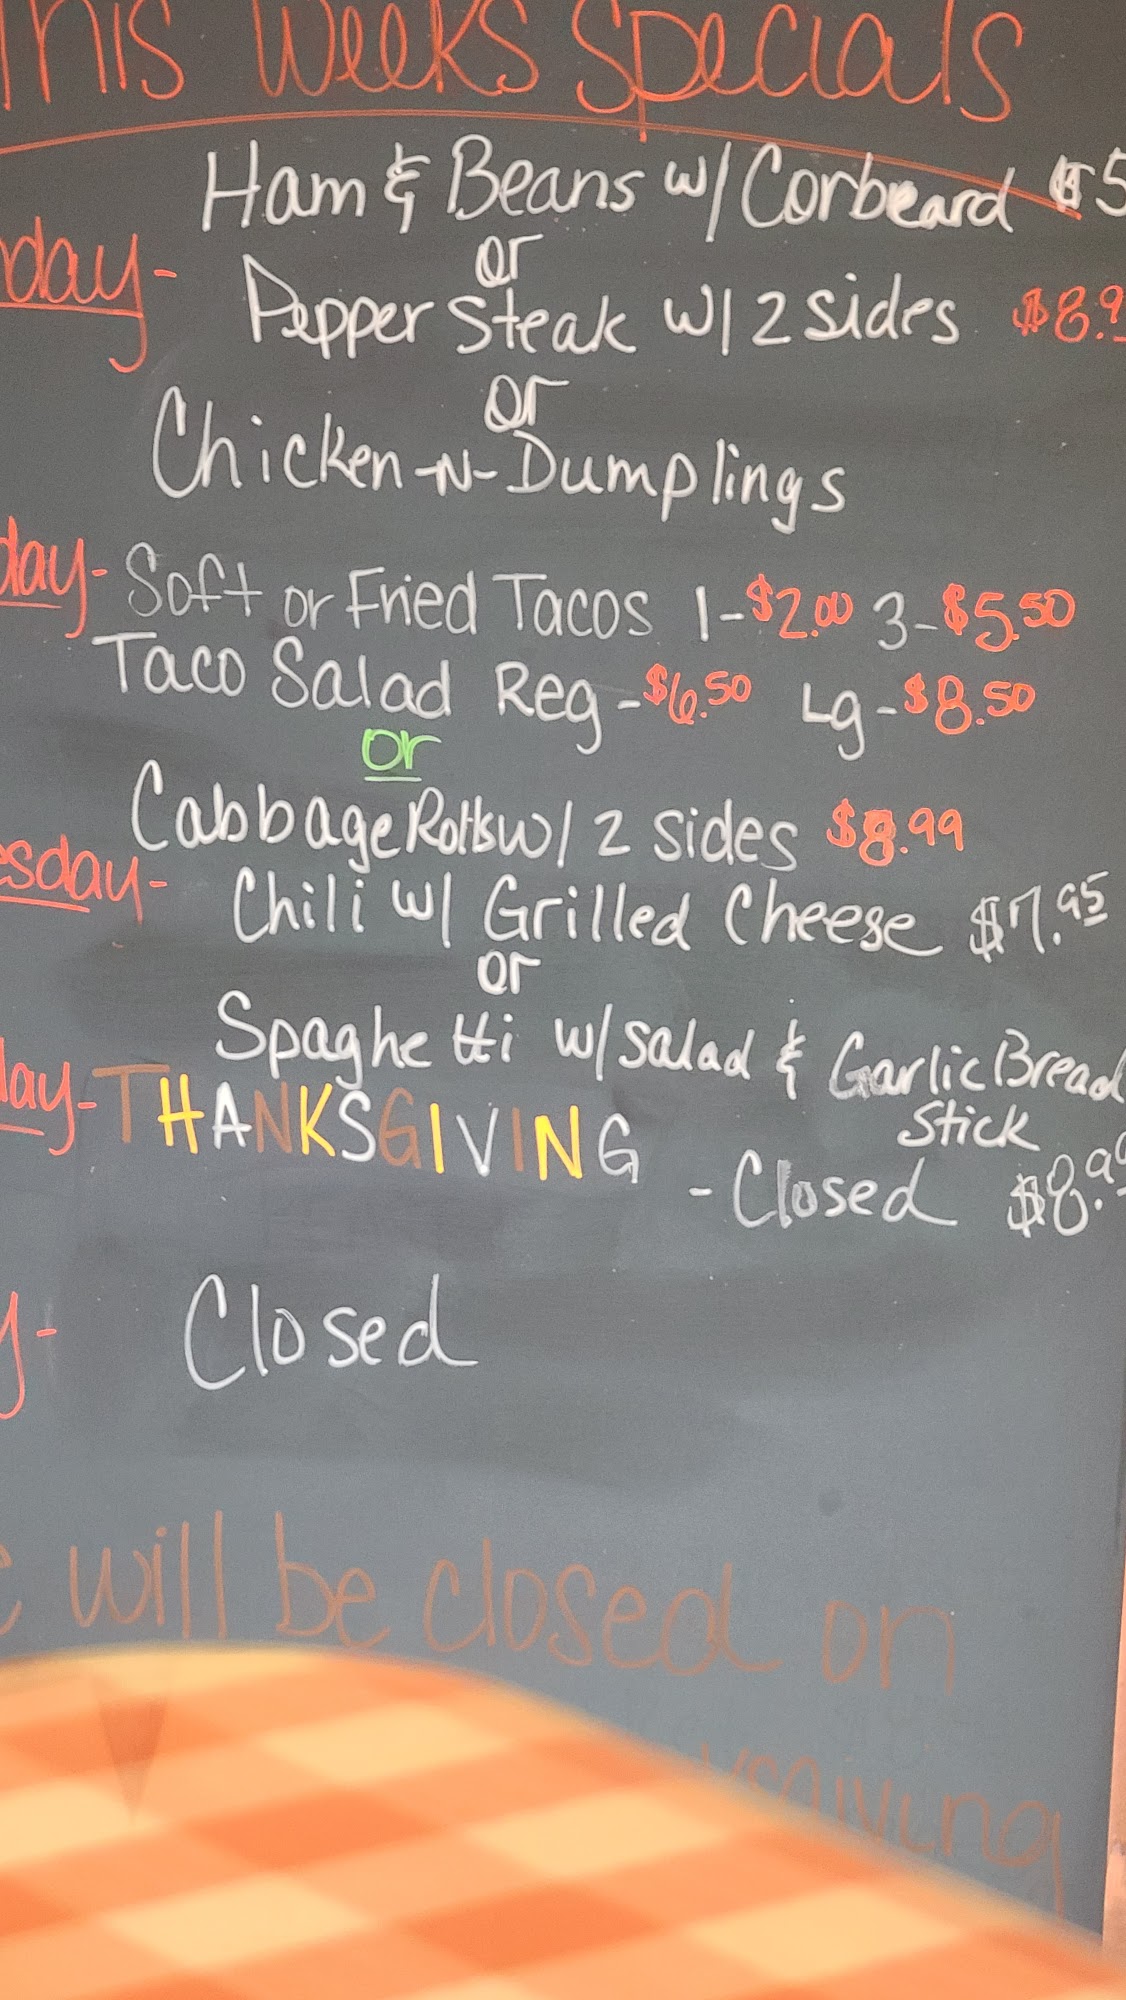 This Weeks Specials
Ham & Beans w/ Corbeard $5
or
day- Pepper Steak w/ 2 sides $8.9
or
Chicken-N-Dumplings
day- Soft or Fried Tacos 1-$2.00 3-$5.50
Taco Salad Reg-$6.50 Lg-$8.50
or
Cabbage Rolls w/ 2 sides $8.99
esday- Chili w/ Grilled Cheese $7.95
or
Spaghetti w/ salad & Garlic Bread
Stick
day- THANKSGIVING
-Closed $8.99
y- Closed
will be closed on
ksgiving